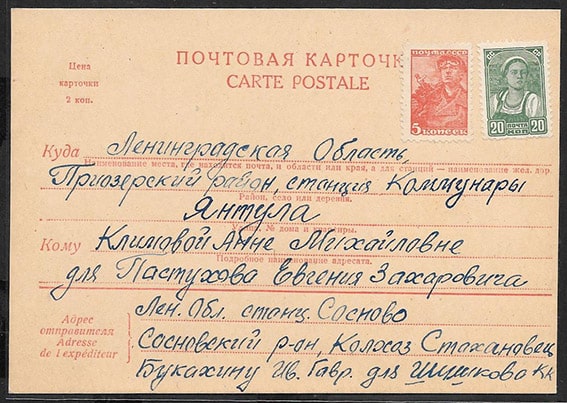 ПОЧТОВАЯ КАРТОЧК
CARTE POSTALE
Цена
карточки
2 коп.
ПОЧТА СССР
5 КОПЕЕК
20 ПОЧТА 20
КОП
Куда Ленинградская Область,
Наименование места, где находится почта, и области или края, а для станций — наименование жел. дор.
Приозерский район, станция Коммунары
Район, село или деревня.
Янтула
Улица, № дома и квартиры.
Кому Климовой Анне Михайловне
Подробное наименование адресата.
для Пастухова Евгения Захаровича
Лен. Обл. станц. Сосново
Адрес
отправителя
Adresse
de l'expéditeur
Сосновский р-он, Колхоз Стахановец
Букахину Ив. Гавр. для Шишкова КК